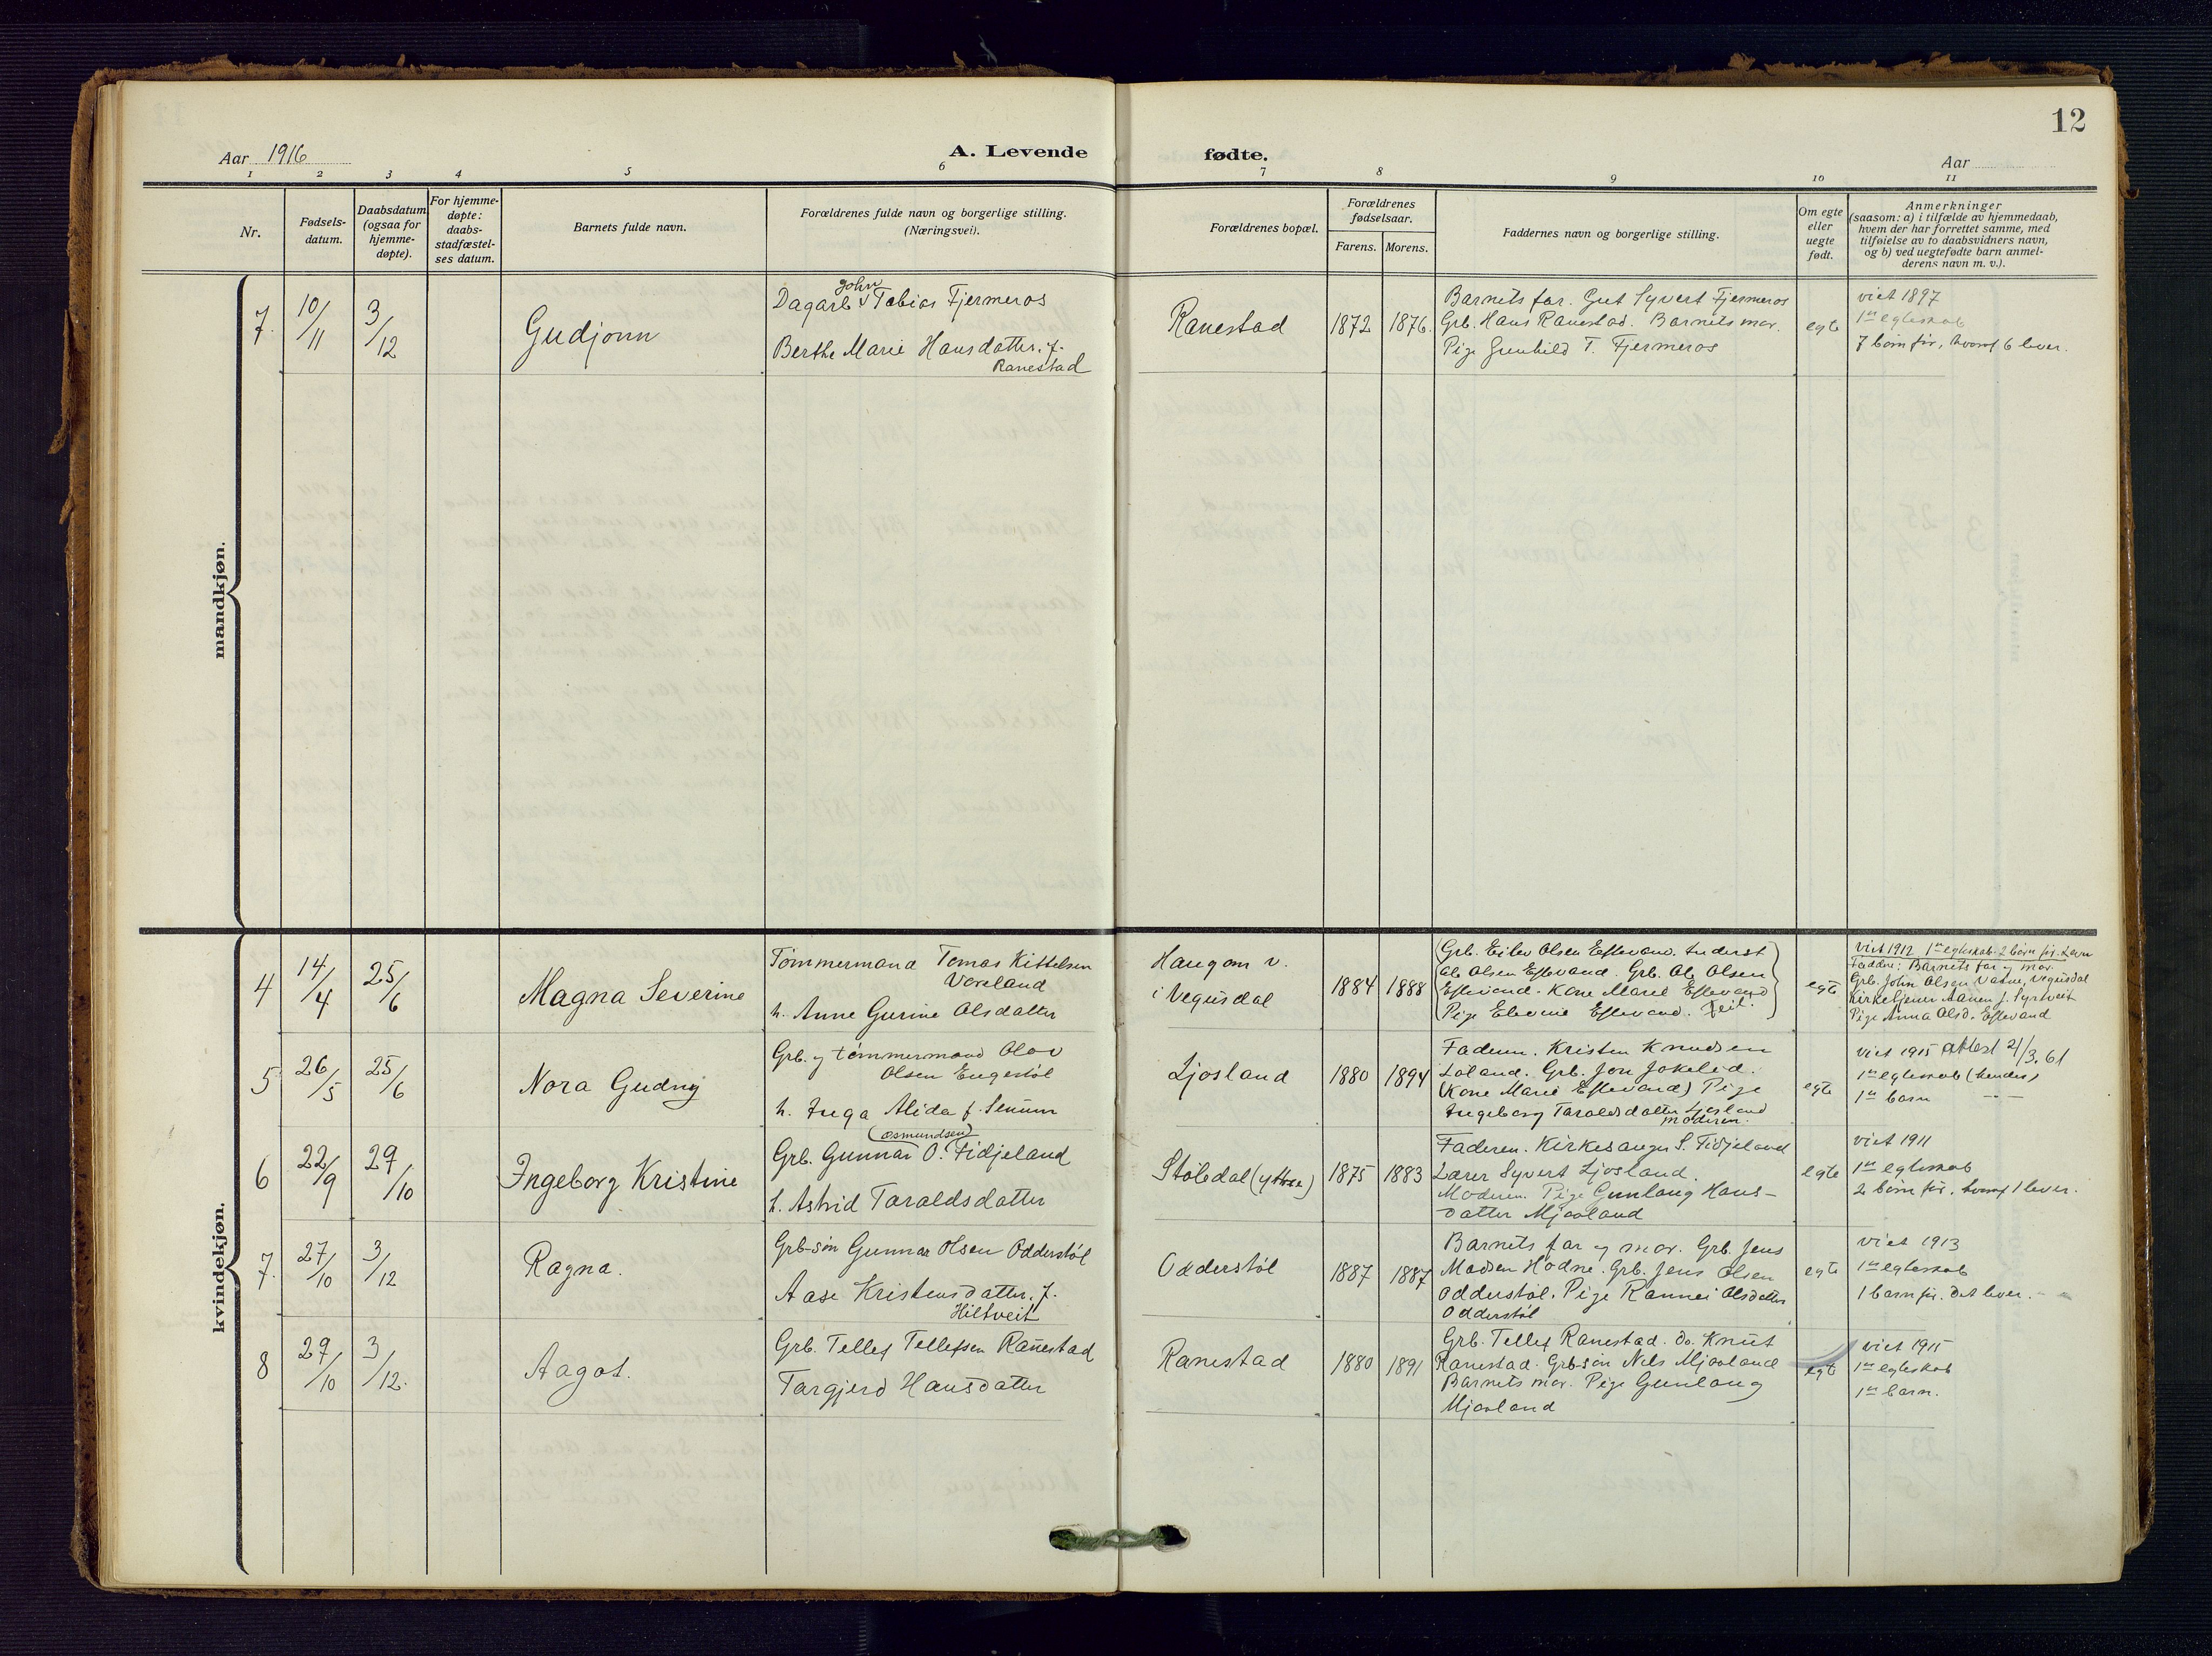 12
Aar 1916
A. Levende
fødte.
Aar
1 2 3 4 5 6 7 8 9 10 11
Nr.
Fødsels-
datum.
Daabsdatum
(ogsaa for
hjemme-
døpte).
For hjemme-
døpte:
daabs-
stadfæstel-
ses datum.
Barnets fulde navn.
Forældrenes fulde navn og borgerlige stilling.
(Næringsvei).
Forældrenes bopæl.
Forældrenes
fødselsaar.
Farens. Morens.
Faddernes navn og borgerlige stilling.
Om egte
eller
uegte
født.
Anmerkninger
(saasom: a) i tilfælde av hjemmedaab,
hvem der har forrettet samme, med
tilføielse av to daabsvidners navn,
og b) ved uegtefødte barn anmel-
derens navn m. v.).
mandkjøn.
7
10/11
3/12
Gudjonn
John
Dagarb. Tobias Fjermeros
Berthe Marie Hansdatter, f.
Ranestad
Ranestad
1872 1876.
Barnets far. Gut Syvert Fjermeros
Grb. Hans Ranestad. Barnets mor.
Pige Gunhild T. Fjermeros
egte
viet 1897
1ste egteskab
7 børn før, hvoraf 6 lever.
kvindekjøn.
4
14/4
25/6
Magna Severine
Tømmermand Tomas Kittelsen
Væreland
h. Anne Gurine Olsdatter
Haugom v.
i Vegusdal
1884 1888
(Grb. Eilev Olsen Eftevand. Inderst
Ole Olsen Eftevand. Grb. Ole Olsen
Eftevand. Kone Marie Eftevand
Pige Elevine Eftevand. Feil.)
egte
viet 1912 1ste egteskab. 2 børn før.
Faddere: Barnets far og mor.
Grb. John Olsen Vatne, Vegusdal
Kirketjener Aanen J. Syrtveit
Pige Anna Olsd. Eftevand
5
26/5
25/6
Nora Gudny
Grb. og tømmermand Olav
Olsen Engestøl
h. Inga Alida f. Senum
Ljosland
1880 1894
Faderen. Kristen Knudsen
Loland. Grb. Jon Jokeleid.
(Kone Marie Eftevand) Pige
Ingeborg Taraldsdatter Ljosland
moderen.
egte
viet 1915 attest 21/3.61
1ste egteskab (hendes)
1ste barn — —
6
22/9
29/10
Ingeborg Kristine
(Osmundsen)
Grb. Gunnar O. Fidjeland
h. Astrid Taraldsdatter
Stoledal (yttre)
1875 1883
Faderen. Kirkesanger S. Fidjeland
Lærer Syvert Ljosland.
Moderen. Pige Gunlaug Hans-
datter Mjaaland
egte
viet 1911
1ste egteskab
2 børn før, hvoraf 1 lever.
7.
27/10
3/12
Ragna.
Grb-søn Gunnar Olsen Odderstøl
Aase Kristensdatter, f.
Hiltveit
Odderstøl
1887 1887
Barnets far og mor. Grb. Jens
Madsen Hodne. Grb. Jens Olsen
Odderstøl. Pige Rannei Olsdatter
Odderstøl
egte
viet 1913
1ste egteskab
1 barn før. Det lever.
8
29/10
3/12.
Aagot.
Grb. Tellef Tellefsen Ranestad
Targjerd Hansdatter
Ranestad
1880 1891
Grb. Tellef Ranestad. do. Knut
Ranestad. Grb-søn Nils Mjaaland
Barnets mor. Pige Gunlaug
Mjaaland
egte
viet 1915
1ste egteskab
1ste barn.